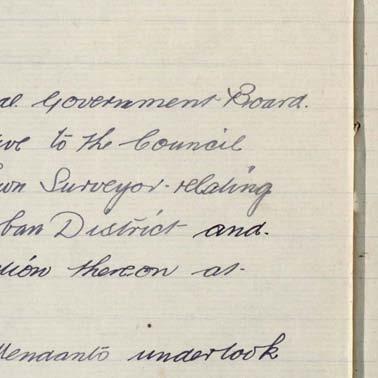 al Government Board.
ive to the Council
own Surveyor relating
ban District and
tion thereon at
undertook